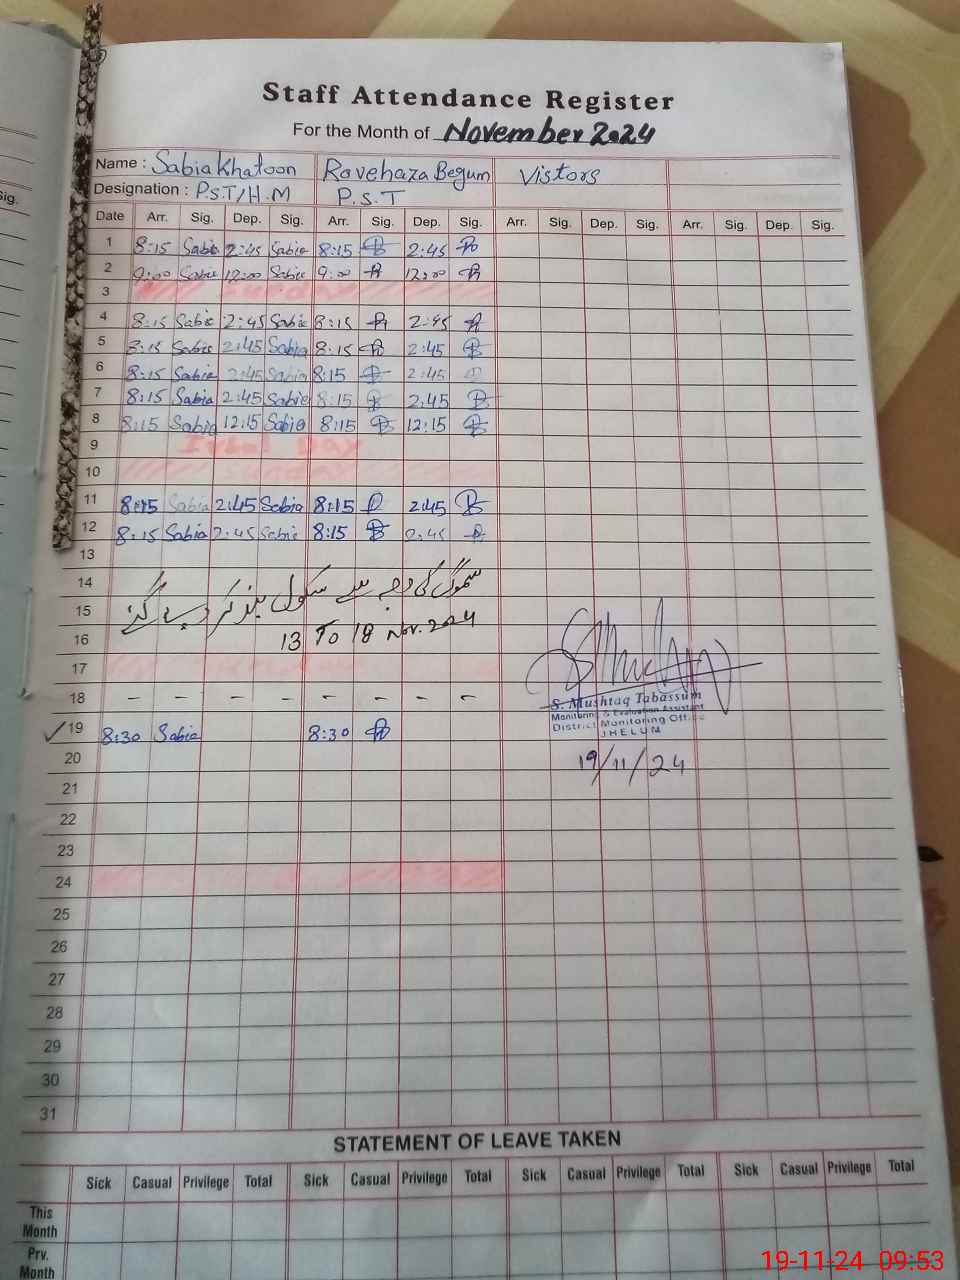 Staff Attendance Register
For the Month of November 2024
Name : Sabia Khatoon Rovehaza Begum Vistors
Designation : P.S.T/H.M P.S.T
Date Arr. Sig. Dep. Sig. Arr. Sig. Dep. Sig. Arr. Sig. Dep. Sig. Arr. Sig. Dep. Sig.
1 8:15 Sabia 2:45 Sabia 8:15 2:45
2 9:00 Sabia 12:00 Sabia 9:00 12:00
3 Sunday
4 8:15 Sabia 2:45 Sabia 8:15 2:45
5 8:15 Sabia 2:45 Sabia 8:15 2:45
6 8:15 Sabia 2:45 Sabia 8:15 2:45
7 8:15 Sabia 2:45 Sabia 8:15 2:45
8 8:15 Sabia 12:15 Sabia 8:15 12:15
9 Iqbal Day
10 Sunday
11 8:15 Sabia 2:45 Sabia 8:15 2:45
12 8:15 Sabia 2:45 Sabia 8:15 2:45
13
14
سموگ کی وجہ سے سکول بند کر دیے گئے
15
16 13 To 18 Nov. 2024
17
18 – – – – – – – –
S. Mushtaq Tabassum
Monitoring & Evaluation Assistant
District Monitoring Office
JHELUM
19 8:30 Sabia 8:30
19/11/24
20
21
22
23
24
25
26
27
28
29
30
31
STATEMENT OF LEAVE TAKEN
Sick Casual Privilege Total Sick Casual Privilege Total Sick Casual Privilege Total Sick Casual Privilege Total
This Month
Prv. Month
19-11-24 09:53
sig.